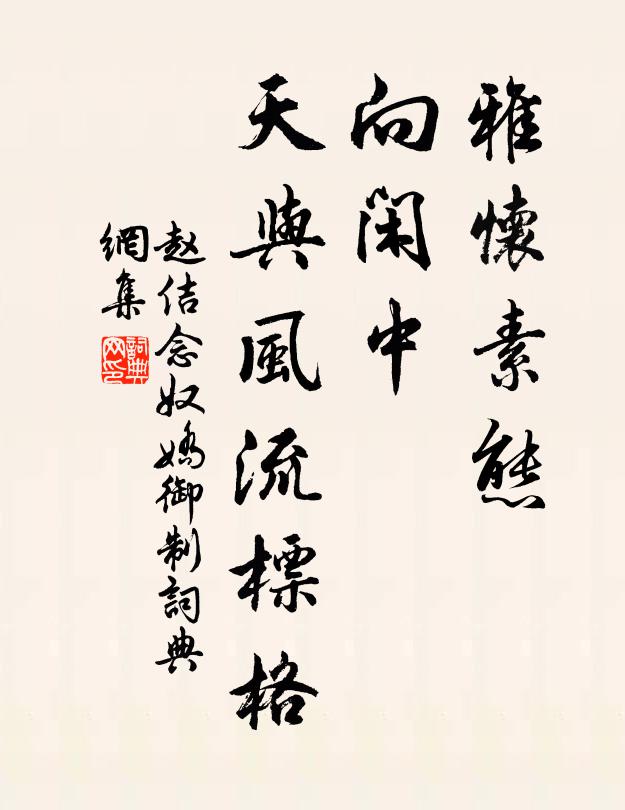 雅懷素態
向閑中
天與風流標格
赵佶念奴嬌御制詞典
網集
詞典网印